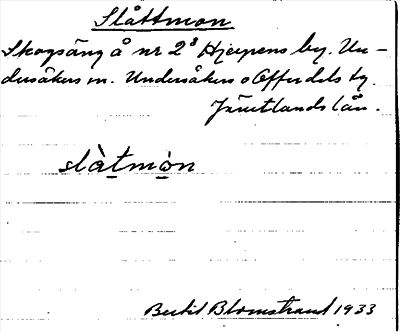 Slåttmon
Skogsäng å nr 2³ Hjerpens by. Un-
dersåkers sn. Undersåkers o Offerdals tg.
Jämtlands län.
slàtmòn
Bertil Blomstrand 1933